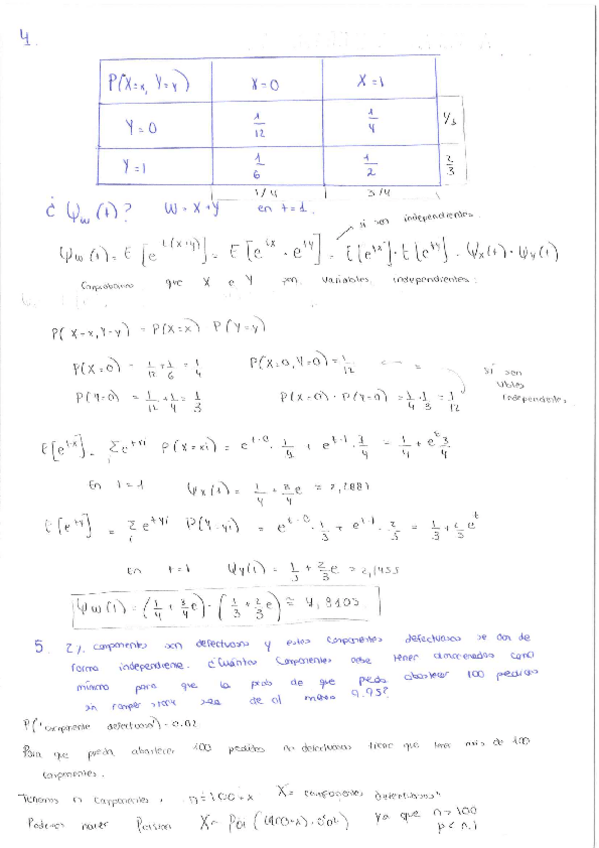 4.
P(X=x, Y=y) X=0 X=1
Y=0 1/12 1/4 1/3
Y=1 1/6 1/2 2/3
1/4 3/4
¿ Ψw(t)? W=X+Y en t=1.
si son independientes
Ψw(t)= E[e^t(x+y)] = E[e^tx · e^ty] = E[e^tx]·E[e^ty] = Ψx(t)·Ψy(t)
Comprobamos que X e Y son variables independientes:
P(X=x, Y=y) = P(X=x) P(Y=y)
P(X=0) = 1/12 + 1/6 = 1/4 P(X=0, Y=0) = 1/12
P(Y=0) = 1/12 + 1/4 = 1/3 P(X=0) · P(Y=0) = 1/4 · 1/3 = 1/12
sí son vbles independientes
E[e^tx] = Σ e^txi P(X=xi) = e^t·0 · 1/4 + e^t·1 · 3/4 = 1/4 + e^t 3/4
En t=1 Ψx(1) = 1/4 + 3/4 e
E[e^ty] = Σ e^tyi P(Y=yi) = e^t·0 · 1/3 + e^t·1 · 2/3 = 1/3 + 2/3 e^t
en t=1 Ψy(1) = 1/3 + 2/3 e = 2,1455
Ψw(1) = (1/4 + 3/4 e) · (1/3 + 2/3 e) ≅ 4,9103
5. 2% componentes son defectuosos y estos componentes defectuosos se dan de
forma independiente. ¿Cuántos componentes debe tener almacenados como
mínimo para que la prob de que pueda abastecer 100 pedidos
sin romper stock sea de al menos 0.95?
P("componente defectuoso") = 0.02
Para que pueda abastecer 100 pedidos no defectuosos tiene que tener más de 100
componentes.
Tenemos n componentes, n=100+x X="componentes defectuosos"
Podemos hacer Poisson X~Poi((100+x)·0'02) ya que n>100
p<0.1